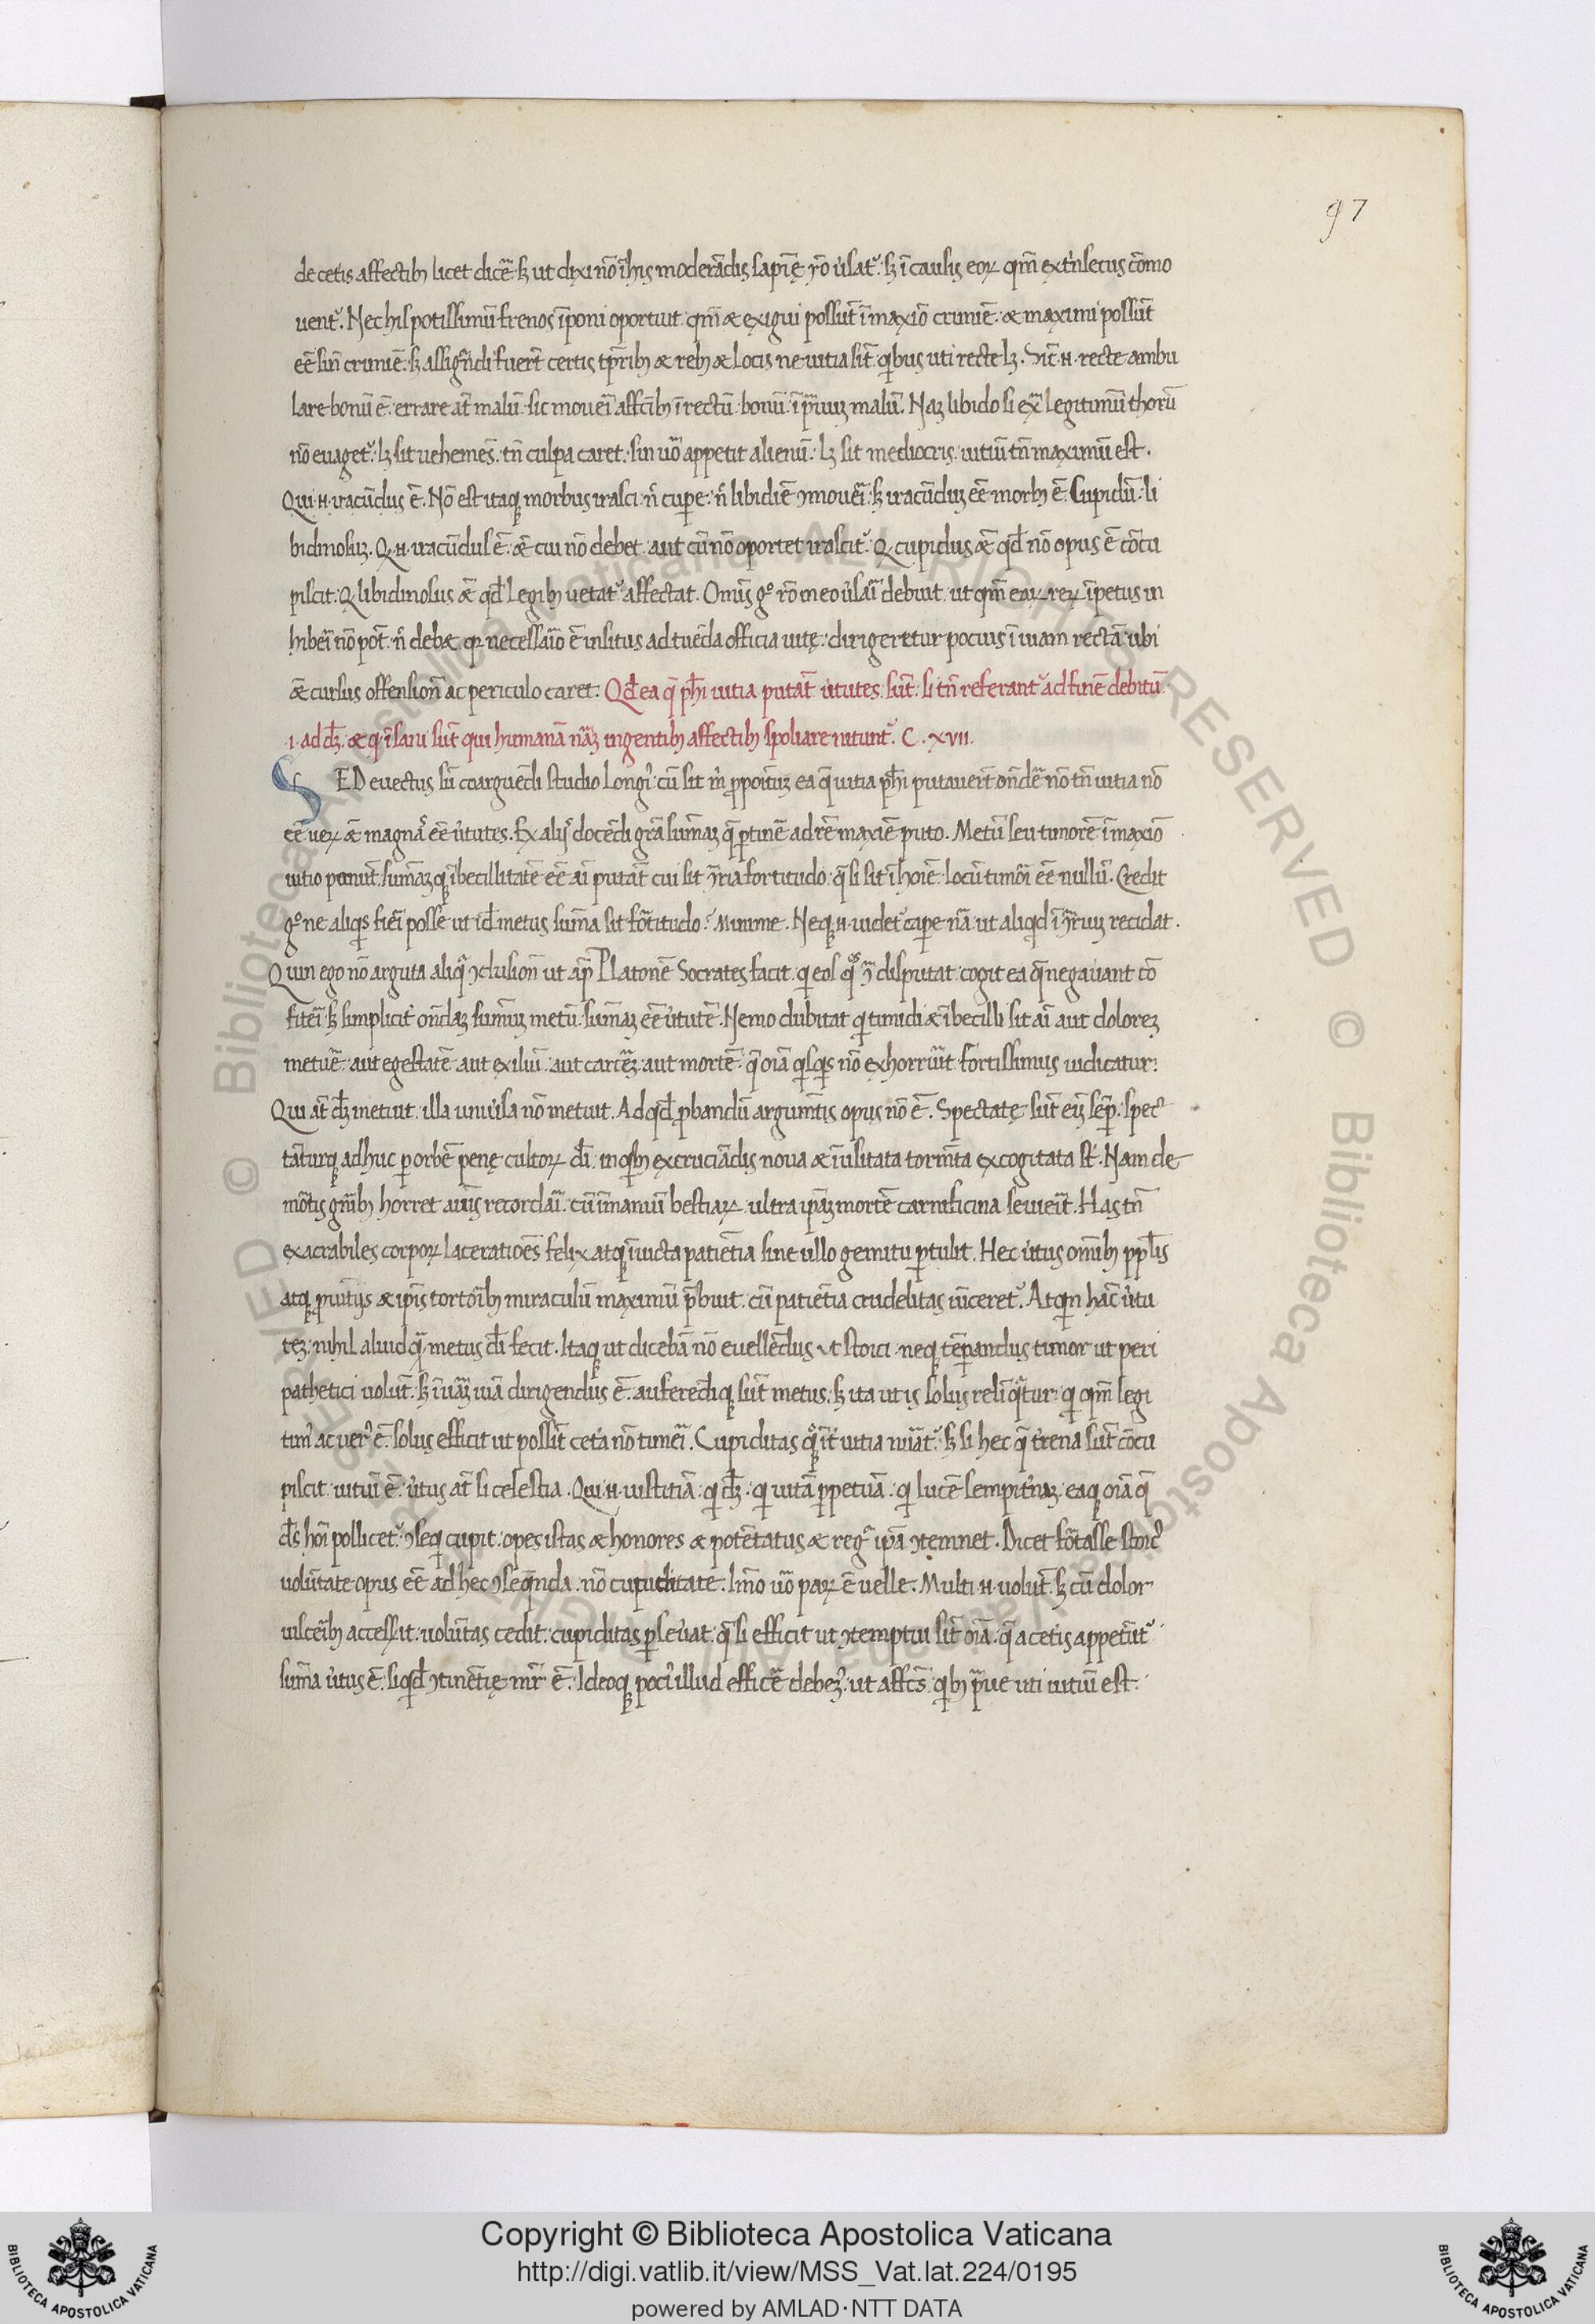 97
de cet̾is affectib₃ licet dicẽ. sꝫ ut dixi nõ ĩ his moderãdis sapiẽtię rõ ũsat᷑. sꝫ ĩ causis eoꝝ qm̃ ext̾insecus cõmo
uent᷑. Nec his potissimũ frenos ĩponi oportuit. qm̃ & exigui possũt ĩ maxiõ crimiẽ. & maximi possũt
eẽ siñ crimiẽ. sꝫ assignãdi fuert̃ certis tp̃rib₃ & reb₃ & locis ne uitia sĩt q̇bus uti recte lꝫ. Sic̃ .n. recte ambu
lare bonũ ẽ. errare at̃ malũ. sic moueri affc̃ib₃ ĩ rectũ bonũ. ĩ p̃uuꝫ malũ. Naꝫ libido si ex̃ legitimũ thorũ
nõ euaget᷑. lꝫ sit uehemẽs. tñ culpa caret. sin uõ appetit alienũ. lꝫ sit mediocris. uitiũ tñ maximũ est.
Qui .n. iracũdus ẽ. Nõ est itaqꝫ morbus irasci. n̄ cuꝑe. n̄ libidiẽ ꝯmoueri. sꝫ iracũduꝫ eẽ morb₃ ẽ. Cupidũ. li
bidinosuꝫ. Q .n. iracũdus ẽ. & cui nõ debet. aut cũ nõ oportet irascit᷑. Q cupidus & qd̃ nõ opus ẽ cõcu
piscit. Q libidinosus & qd̃ legib₃ uetat᷑ affectat. Omis̃ gͦ rõ in eo ũsari debuit. ut qm̃ eaꝝ reꝝ ĩpetus in
hiberi nõ pot̃. n̄ debet qꝛ necessaĩo ẽ insitus ad tuẽda officia uitę. dirigeretur pocius ĩ uiam rectã. ubi
& cursus offensioñ ac periculo caret. Qd̃ ea q̃ ph̃i uitia putãt ũtutes sũt. si tñ referant᷑ ad finẽ debitũ
.i. ad dꝫ. & q ĩsani sũt qui humanã nãꝫ ingentib₃ affectib₃ spoliare nitunt᷑. C. xvii.
SED euectus sũ coarguẽdi studio longi᷒. cũ sit m̃ ꝓpoĩtuꝫ ea q̃ uitia ph̃i putauert̃ onđe nõ tñ uitia nõ
eẽ ueꝝ & magna᷒ eẽ ũtutes. Ex alijs docẽdi grã sumaꝫ q̃ ꝑtinẽ ad rẽ maxiẽ puto. Metũ seu timorẽ ĩ maxiõ
uitio ponũt. sum̃aꝫqꝫ ĩbecillitatẽ eẽ ai putãt cui sit ꝯ̃ria fortitudo. q̃ si sit ĩ hoiẽ. locũ timori eẽ nullũ. Credit
gͦ ne aliqͥs fieri posse ut id̃ metus sum̃a sit fõtitudo? Minime. Neqꝫ .n. uidet᷑ caꝑe nã. ut aliqͥd ĩ ꝯ̃riuꝫ recidat.
Quin ego nõ arguta aliq̃ ꝯclusioñ ut ap̃ Platonẽ Socrates facit. q eos qͦs ꝯ̃ disputat cogit ea q̃ negauant cõ
fiteri. sꝫ simplicit̾ onđaꝫ sum̃uꝫ metũ. sum̃aꝫ eẽ ũtutẽ. Nemo dubitat q timidi & ĩbecilli sit ai aut dolorez
metuẽ. aut egestatẽ aut exiliũ. aut carcẽꝫ. aut mortẽ. q̃ oĩa qͥsqͥs nõ exhorruit. fortissimus iudicatur.
Qui at̃ dꝫ metuit. illa uniũsa nõ metuit. Ad qd̃ ꝓbandũ argumẽtis opus nõ ẽ. Spectatę sũt eĩ sẽp. spec
tãturqꝫ adhuc ꝑ orbẽ penę cultoꝝ di. in qͥb₃ excruciãdis noua & ĩusitata tormẽta excogitata st̃. Nam de
mõtis gñib₃ horret aiũs recordari. cũ ĩmaniũ bestiaꝝ ultra ip̃aꝫ mortẽ carnificina seuierit̃. Has tñ
exacrabiles corpoꝝ laceratiões felix atqꝫ ĩuicta patiẽtia sine ullo gemitu ꝑtulit. Hec ũtus om̃ib₃ pp̃lis
atqꝫ ꝓuĩtijs & ip̃is tortorib₃ miraculũ maximũ p̃buit. cũ patiẽtia crudelitas uĩceret᷑. Atqͥn hãc ũtu
teꝫ. nihil aliud q̃ metus di fecit. Itaqꝫ ut dicebã nõ euellẽdus ut stoici. neqꝫ tẽꝑandus timor ut peri
pathetici uolũt. sꝫ ĩ uãꝫ uiã dirigendus ẽ. auferẽdiqꝫ sũt metus. sꝫ ita ut is solus reliq̃tur. q qm̃ legi
tim᷒ ac uer᷒ ẽ. solus efficit ut possĩt cet̾a nõ timeri. Cupiditas qͦqꝫ ĩt̾ uitia nũat᷑. sꝫ si hec q̃ t̾rena sũt cõcu
piscit. uitiũ ẽ. ũtus at̃ si celestia. Qui .n. iustitiã. q dꝫ. q uitã ꝑpetuã. q lucẽ sempit̾naꝫ. eaqꝫ oĩa q̃
ds̃ hoi pollicet᷑. ꝯseq cupit. opes istas & honores & potẽtatus & regͣ ip̃a ꝯtemnet. Dicet fõtasse stoic᷒
uolũtate opus eẽ ad hec ꝯseq̃nda. nõ cupiditate. Im̃o uõ paꝝ ẽ uelle. Multi .n. uolũt. sꝫ cũ dolor
uiscerib₃ accessit. uolũtas cedit. cupiditas ꝑseũat. q̃ si efficit ut ꝯtemptui sĩt oĩa. q̃ a cet̾is appetũt᷑
sum̃a ũtus ẽ. siqd̃ ꝯtinẽtię mr̃ ẽ. Ideoqꝫ poci᷒ illud efficẽ debe᷒. ut affcs̃. qͥb₃ p̃ue uti uitiũ est.
Copyright © Biblioteca Apostolica Vaticana
http://digi.vatlib.it/view/MSS_Vat.lat.224/0195
powered by AMLAD·NTT DATA